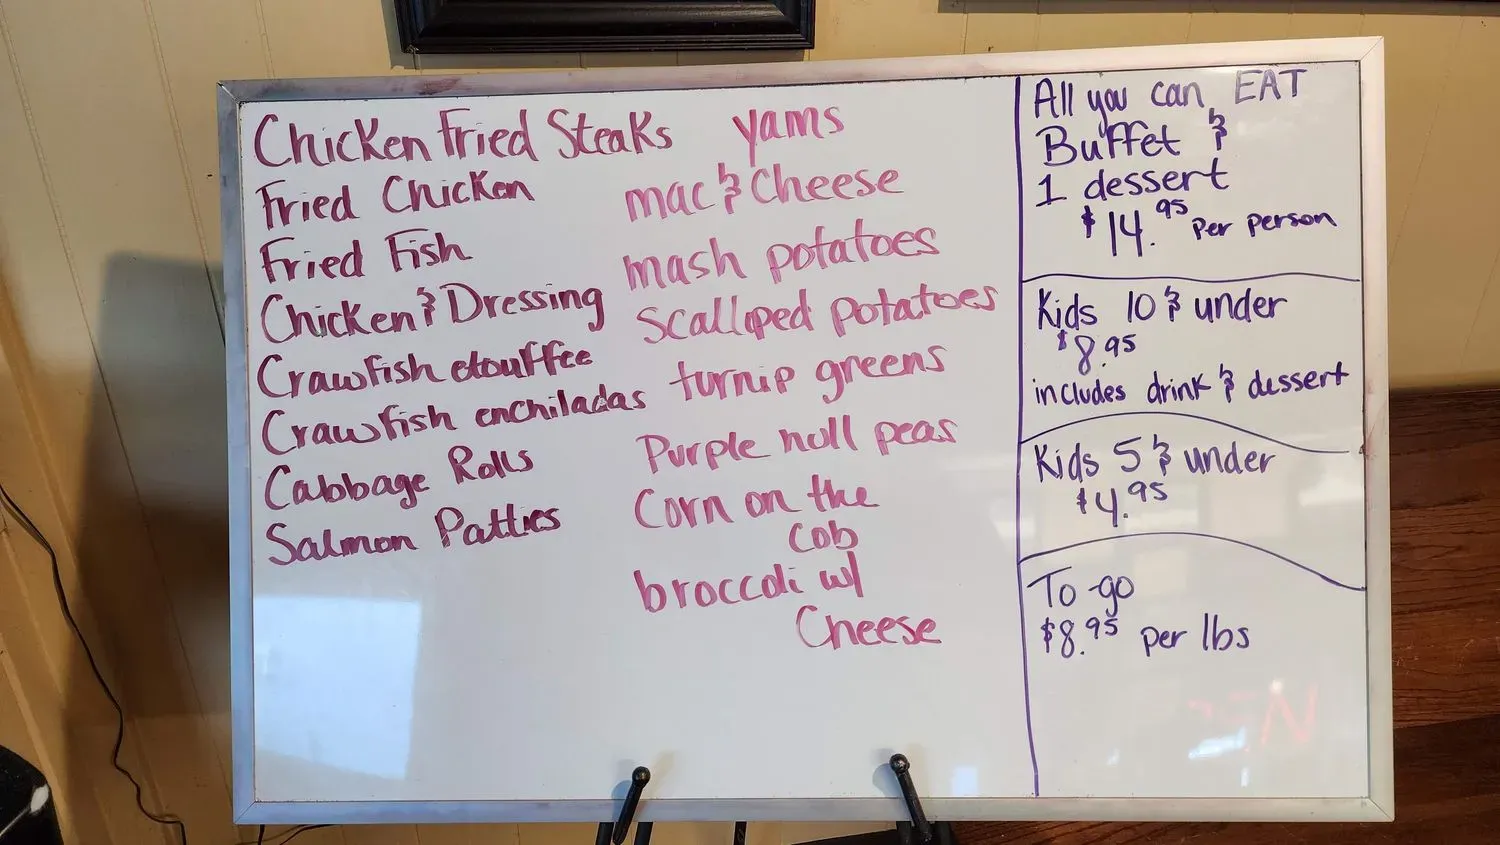 Chicken Fried Steaks
Fried Chicken
Fried Fish
Chicken & Dressing
Crawfish etouffee
Crawfish enchiladas
Cabbage Rolls
Salmon Patties
yams
mac & Cheese
mash potatoes
scalloped potatoes
turnip greens
Purple hull peas
Corn on the
cob
broccoli w/
Cheese
All you can EAT
Buffet &
1 dessert
$14.95 per person
Kids 10 & under
$8.95
includes drink & dessert
Kids 5 & under
$4.95
To-go
$8.95 per lbs